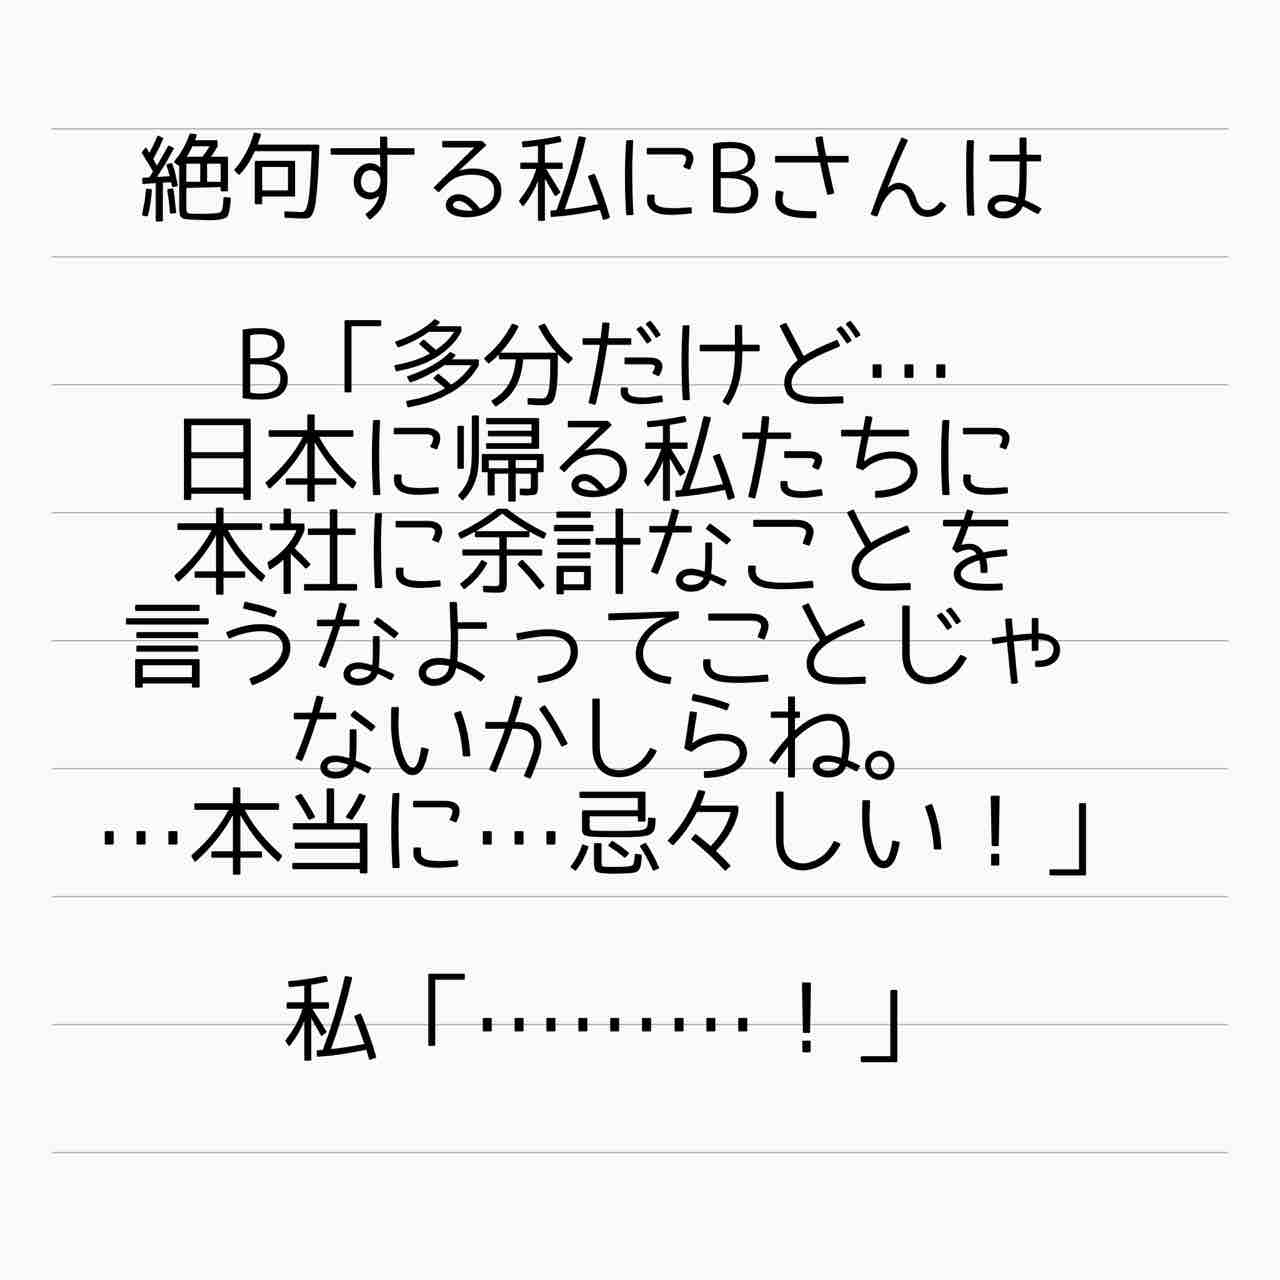 絶句する私にBさんは
B「多分だけど…
日本に帰る私たちに
本社に余計なことを
言うなよってことじゃ
ないかしらね。
…本当に…忌々しい！」
私「………！」